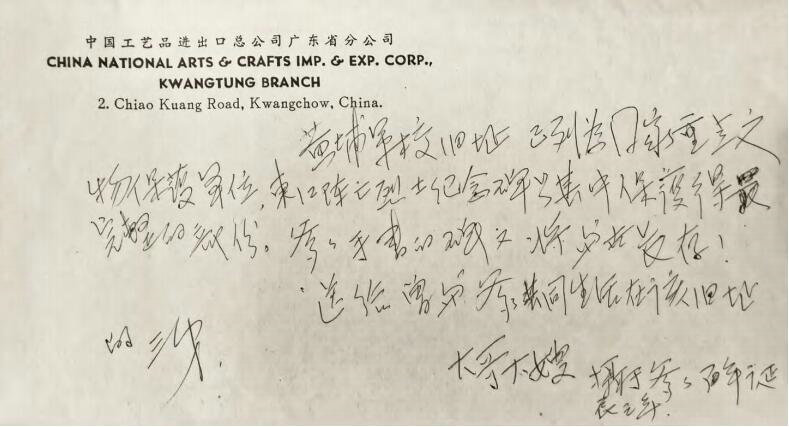 中国工艺品进出口总公司广东省分公司
CHINA NATIONAL ARTS & CRAFTS IMP. & EXP. CORP.,
KWANGTUNG BRANCH
2. Chiao Kuang Road, Kwangchow, China.
黄埔军校旧址已列为国家重点文
物保護单位,東江阵亡烈士纪念碑是其中保護得最
完整的部份。爹々手書的碑文将与世长存!
送给曾与爹々共同生活在该旧址
的三女.
大哥大嫂
摄于爹々百年诞
辰之年.